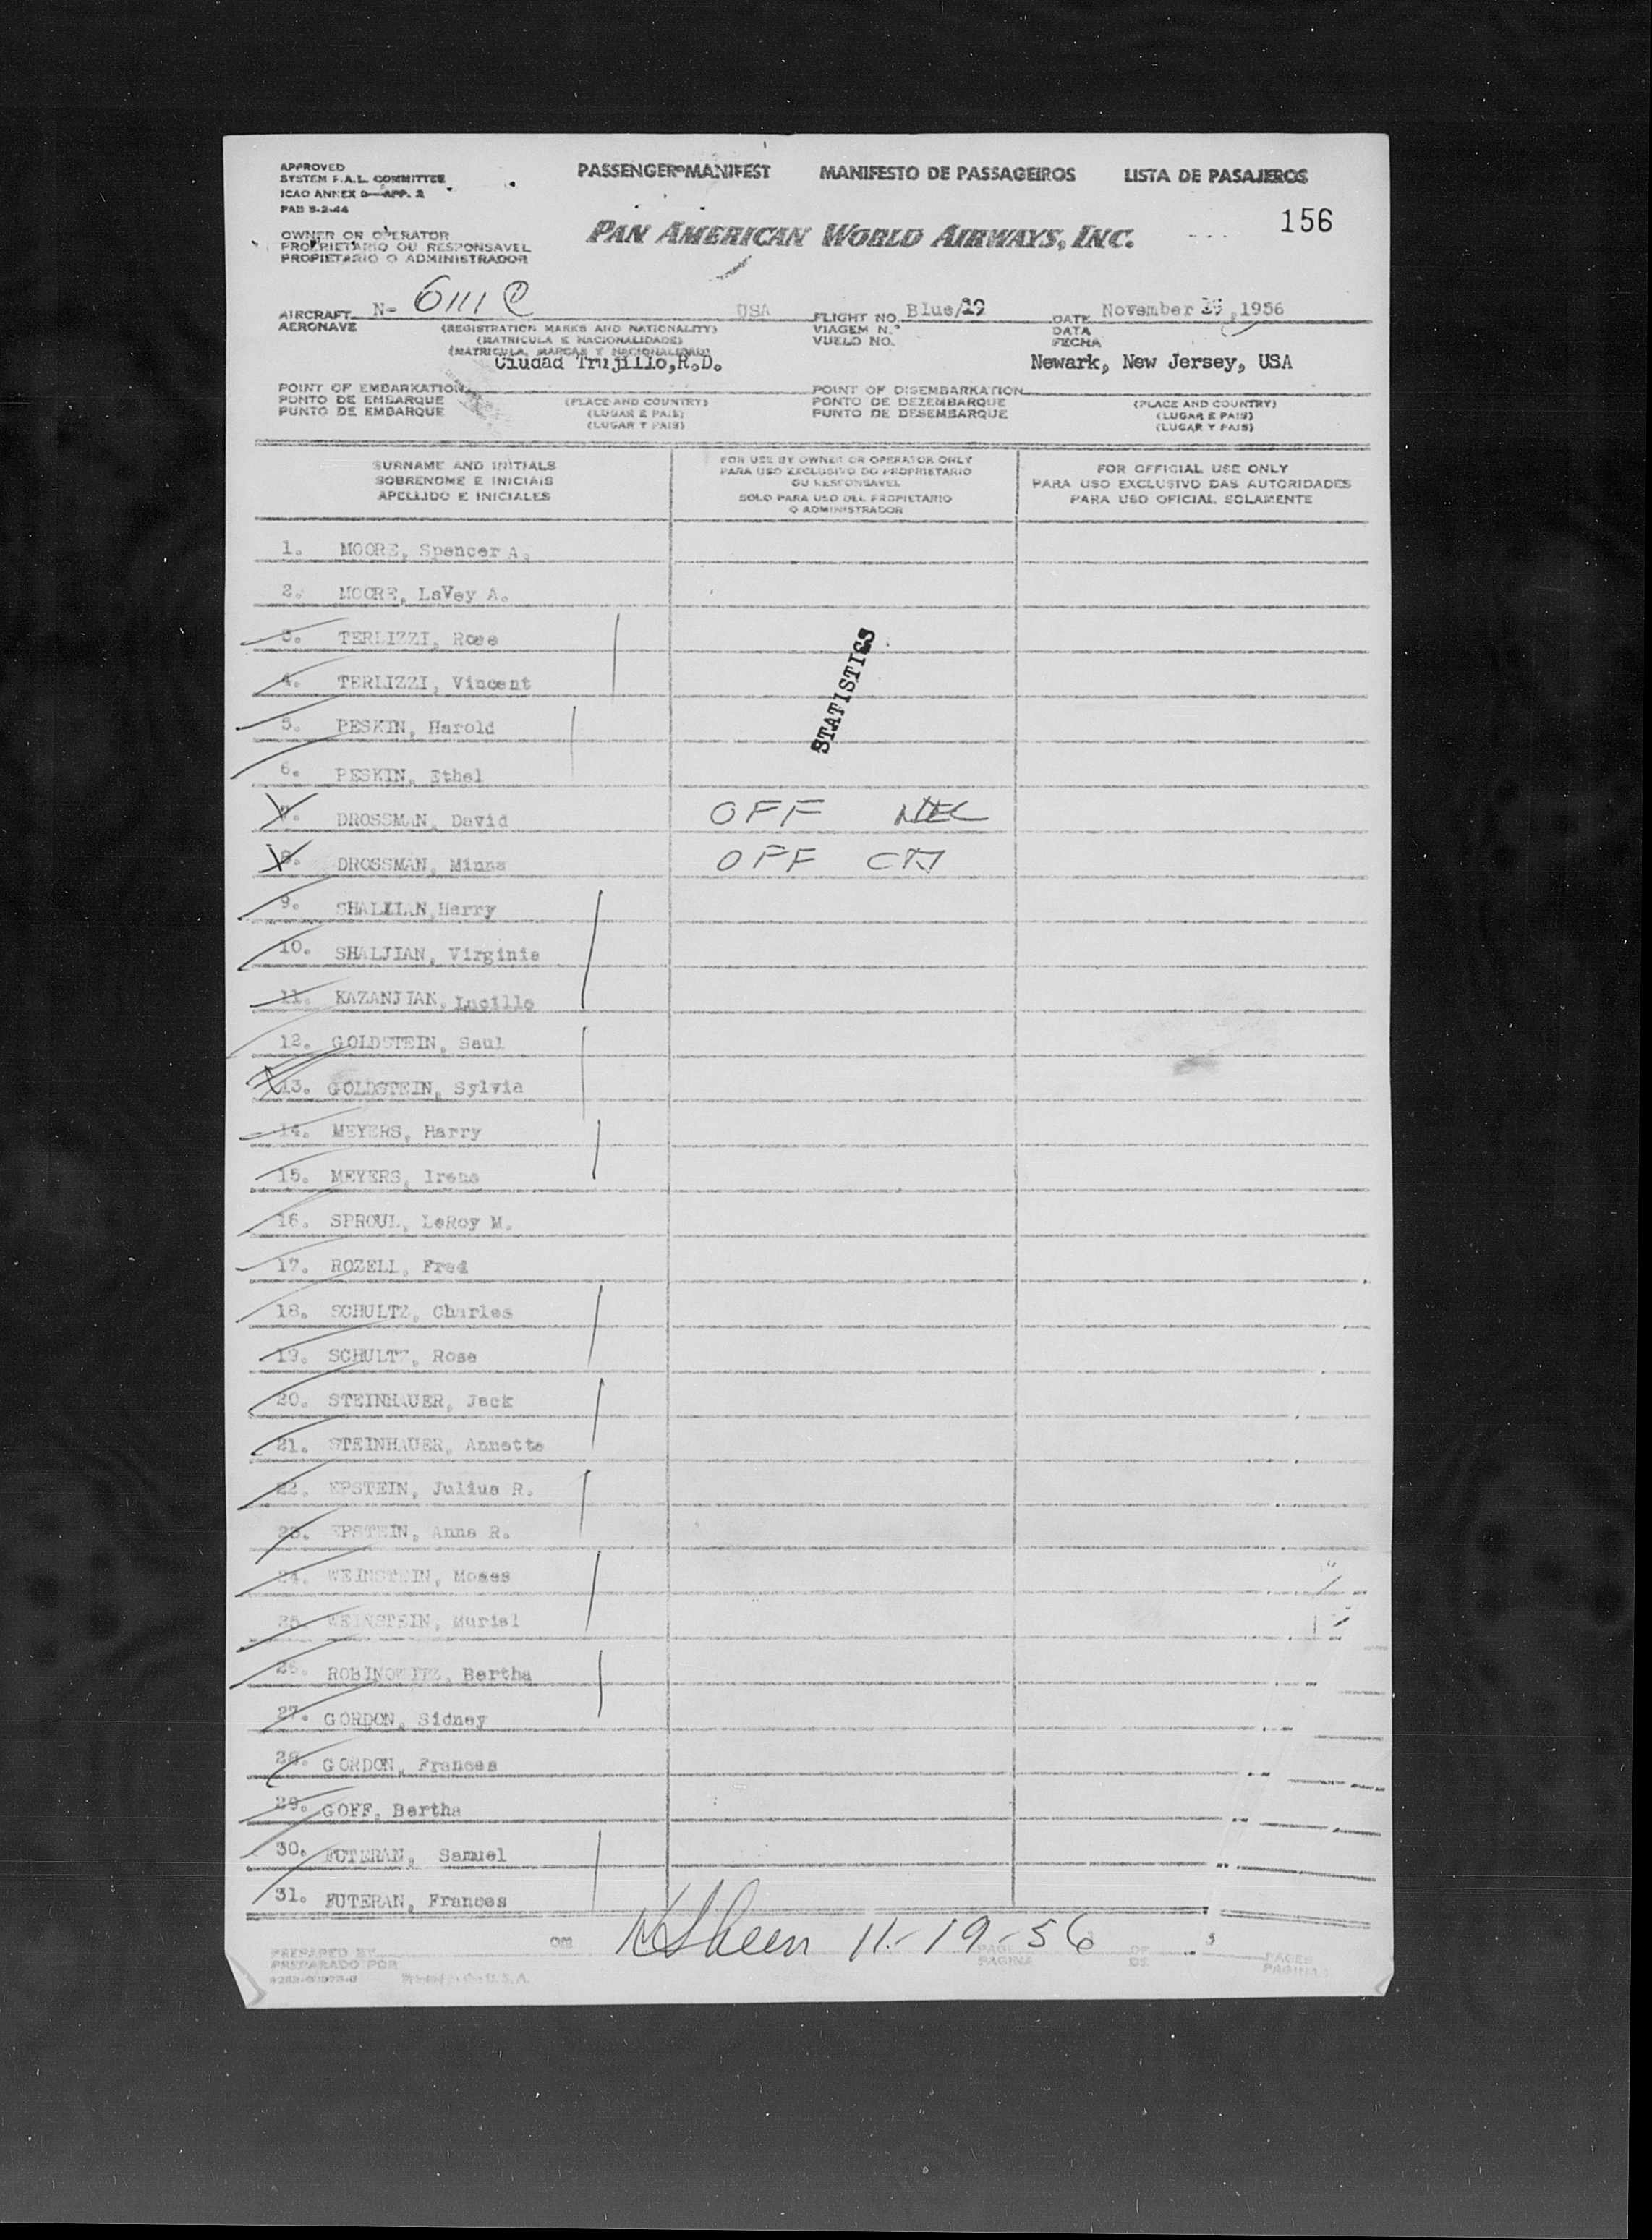 APPROVED
SYSTEM F.A.L. COMMITTEE
ICAO ANNEX 9—APP. 2
PAB 5-2-44
PASSENGER MANIFEST MANIFESTO DE PASSAGEIROS LISTA DE PASAJEROS
156
OWNER OR OPERATOR
PROPRIETARIO OU RESPONSAVEL
PROPIETARIO O ADMINISTRADOR
PAN AMERICAN WORLD AIRWAYS, INC.
AIRCRAFT N- 6111C USA FLIGHT NO. Blue/19 DATE November 19, 1956
AERONAVE (REGISTRATION MARKS AND NATIONALITY) VIAGEM N.º DATA
(MATRICULA E NACIONALIDADE) VUELO NO. FECHA
(MATRICULA, MARCAS Y NACIONALIDAD)
Ciudad Trujillo,R.D. Newark, New Jersey, USA
POINT OF EMBARKATION (PLACE AND COUNTRY) POINT OF DISEMBARKATION (PLACE AND COUNTRY)
PONTO DE EMBARQUE (LUGAR E PAIS) PONTO DE DEZEMBARQUE (LUGAR E PAIS)
PUNTO DE EMBARQUE (LUGAR Y PAIS) PUNTO DE DESEMBARQUE (LUGAR Y PAIS)
SURNAME AND INITIALS
SOBRENOME E INICIAIS
APELLIDO E INICIALES
FOR USE BY OWNER OR OPERATOR ONLY
PARA USO EXCLUSIVO DO PROPRIETARIO
OU RESPONSAVEL
SOLO PARA USO DEL PROPIETARIO
O ADMINISTRADOR
FOR OFFICIAL USE ONLY
PARA USO EXCLUSIVO DAS AUTORIDADES
PARA USO OFICIAL SOLAMENTE
1. MOORE, Spencer A.
2. MOORE, LaVey A.
3. TERLIZZI, Rose
4. TERLIZZI, Vincent
STATISTICS
5. PESKIN, Harold
6. PESKIN, Ethel
7. DROSSMAN, David OFF
8. DROSSMAN, Minna OFF
9. SHALJIAN, Harry
10. SHALJIAN, Virginia
11. KAZANJIAN, Lucille
12. GOLDSTEIN, Saul
13. GOLDSTEIN, Sylvia
14. MEYERS, Harry
15. MEYERS, Irene
16. SPROUL, LeRoy M.
17. ROZELL, Fred
18. SCHULTZ, Charles
19. SCHULTZ, Rose
20. STEINHAUER, Jack
21. STEINHAUER, Annette
22. EPSTEIN, Julius R.
23. EPSTEIN, Anna R.
24. WEINSTEIN, Moses
25. WEINSTEIN, Muriel
26. ROBINOWITZ, Bertha
27. GORDON, Sidney
28. GORDON, Frances
29. GOFF, Bertha
30. FUTERAN, Samuel
31. FUTERAN, Frances
om 11-19-56 3
PREPARED BY PAGE OF PAGES
PREPARADO POR PAGINA DE PAGINAS
Printed in the U.S.A.